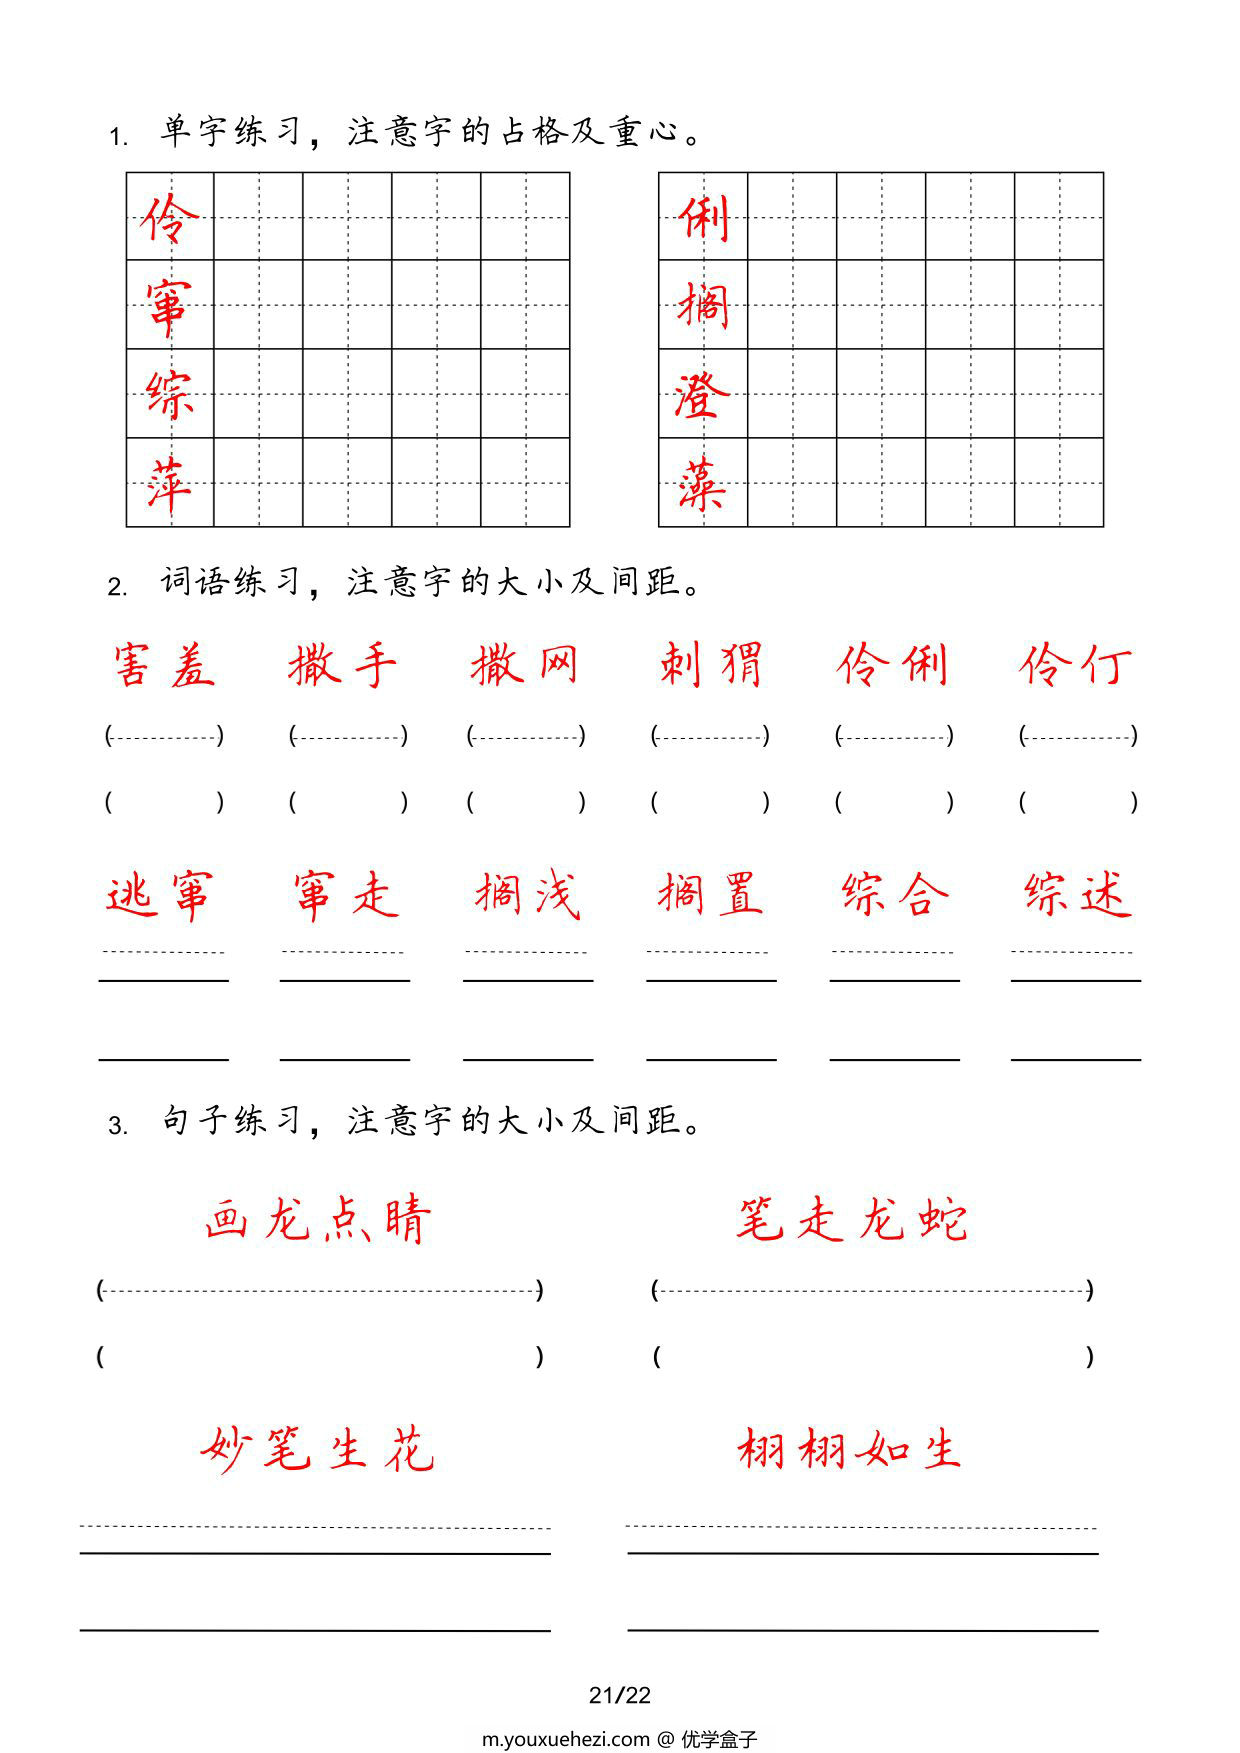 1. 单字练习，注意字的占格及重心。
伶 俐
窜 搁
综 澄
萍 藻
2. 词语练习，注意字的大小及间距。
害羞 撒手 撒网 刺猬 伶俐 伶仃
( ) ( ) ( ) ( ) ( ) ( )
( ) ( ) ( ) ( ) ( ) ( )
逃窜 窜走 搁浅 搁置 综合 综述
3. 句子练习，注意字的大小及间距。
画龙点睛 笔走龙蛇
( ) ( )
( ) ( )
妙笔生花 栩栩如生
21/22
m.youxuehezi.com @ 优学盒子